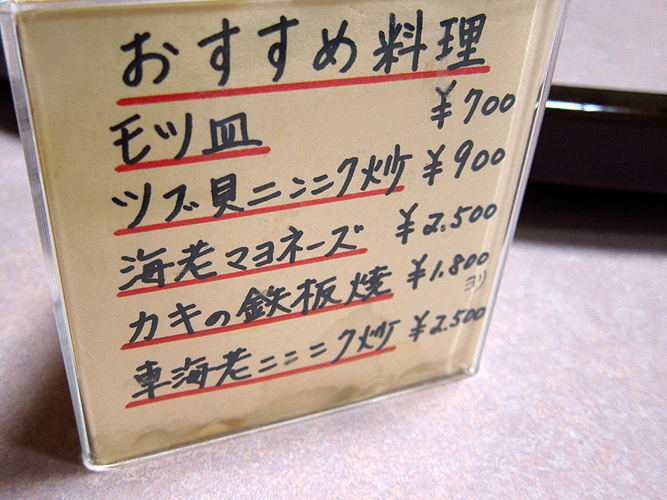 おすすめ料理
モツ皿 ¥700
ツブ貝ニンニク炒 ¥900
海老マヨネーズ ¥2.500
カキの鉄板焼 ¥1.800ヨリ
車海老ニンニク炒 ¥2.500